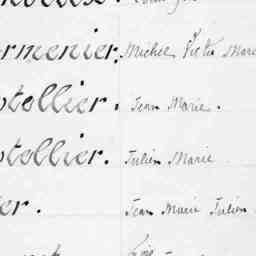 ormenier. Michel Victor Marie
otellier. Jean Marie.
otellier. Julien Marie
er. Jean Marie Julien